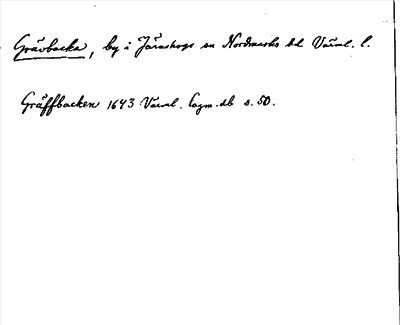 Grävbacka, by i Järnskogs sn Nordmarks hd Värml. l.
Gräffbacken 1643 Värml. lagm.db s. 50.